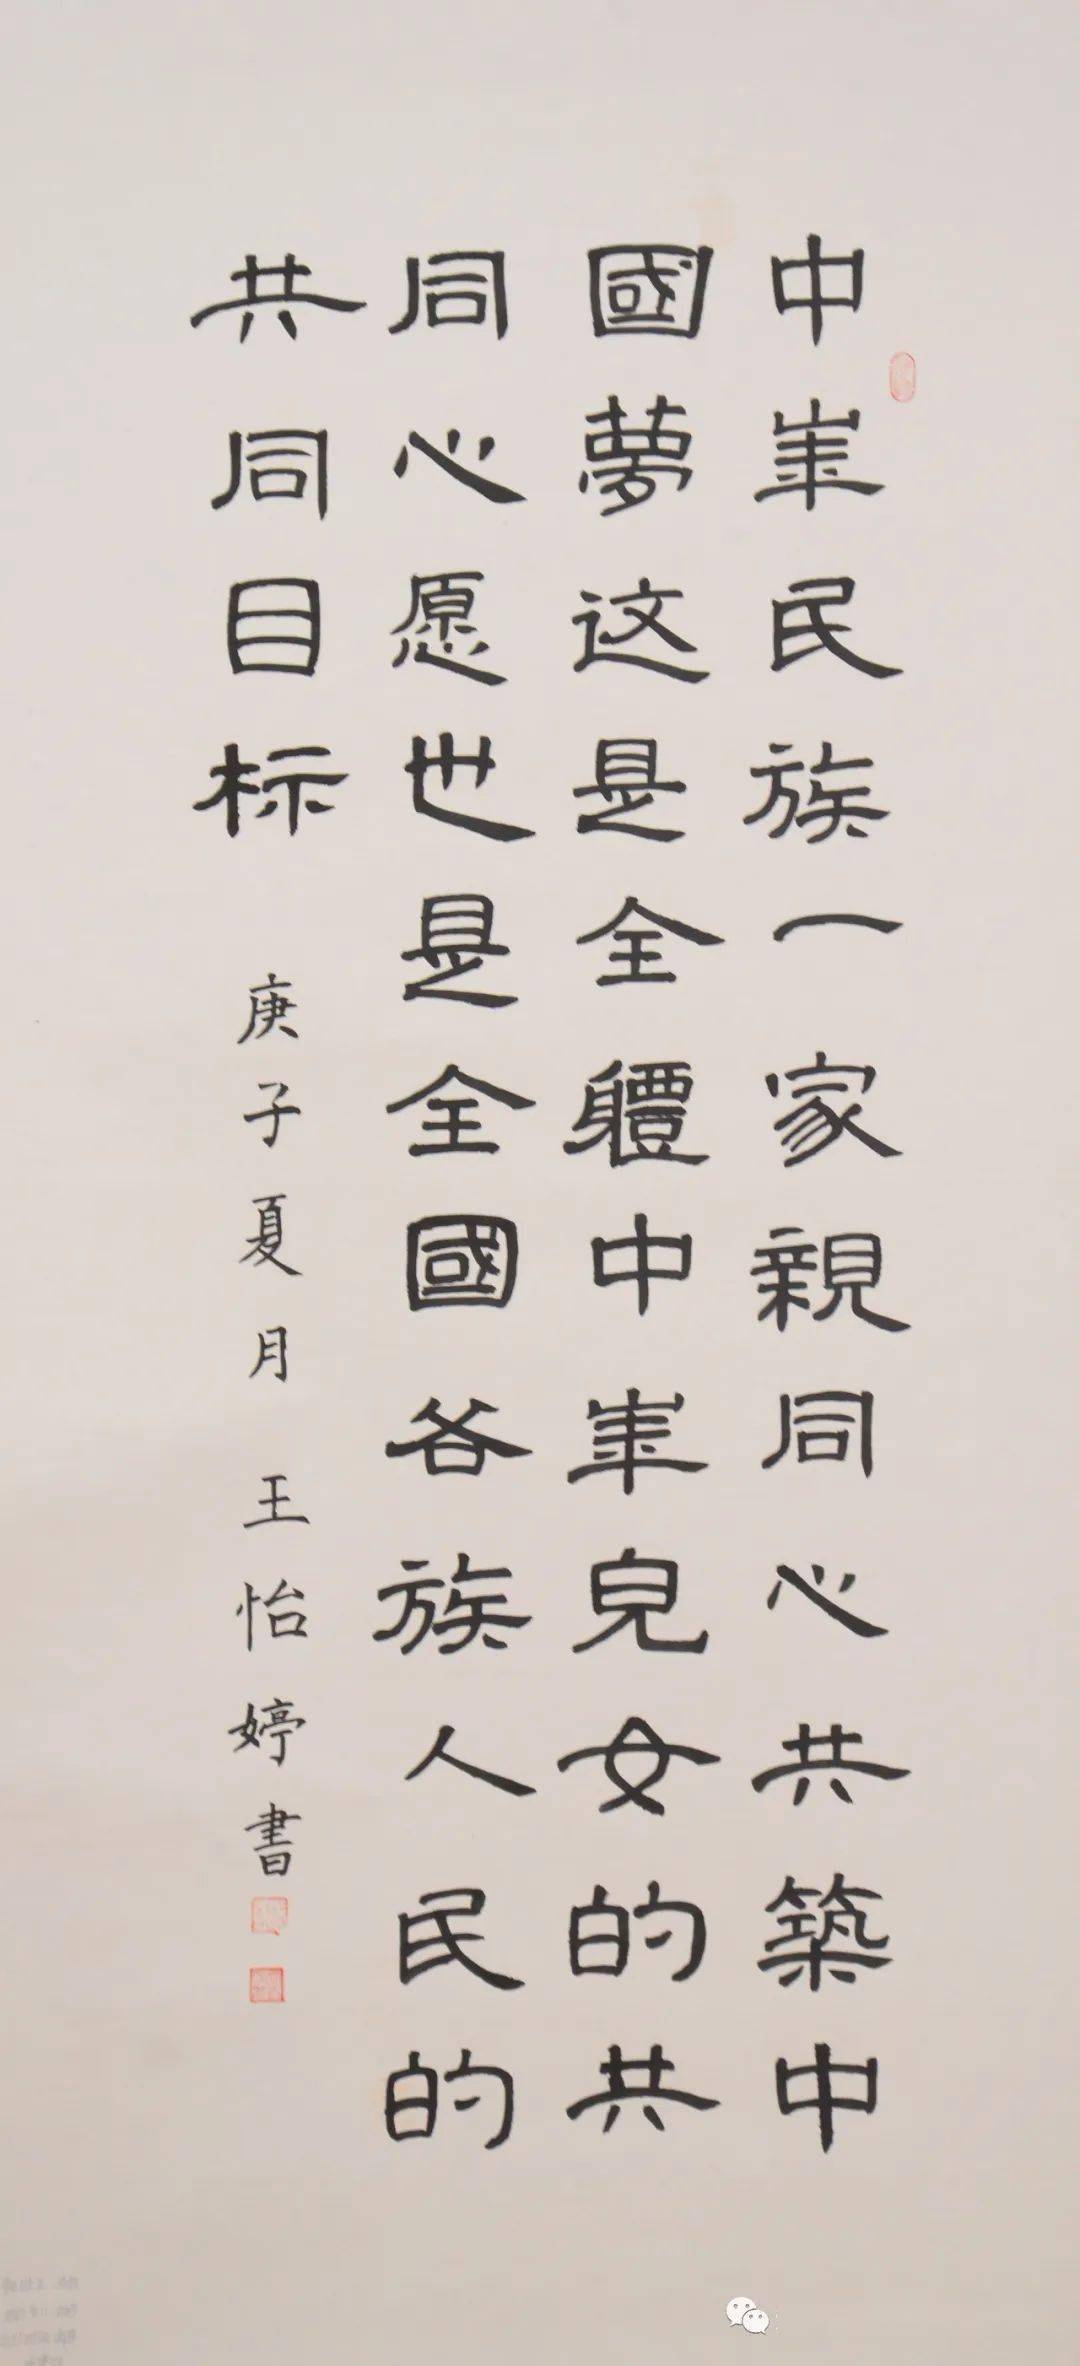 中華民族一家親同心共築中
國夢这是全體中華兒女的共
同心愿也是全國各族人民的
共同目标
庚子夏月 王怡婷書